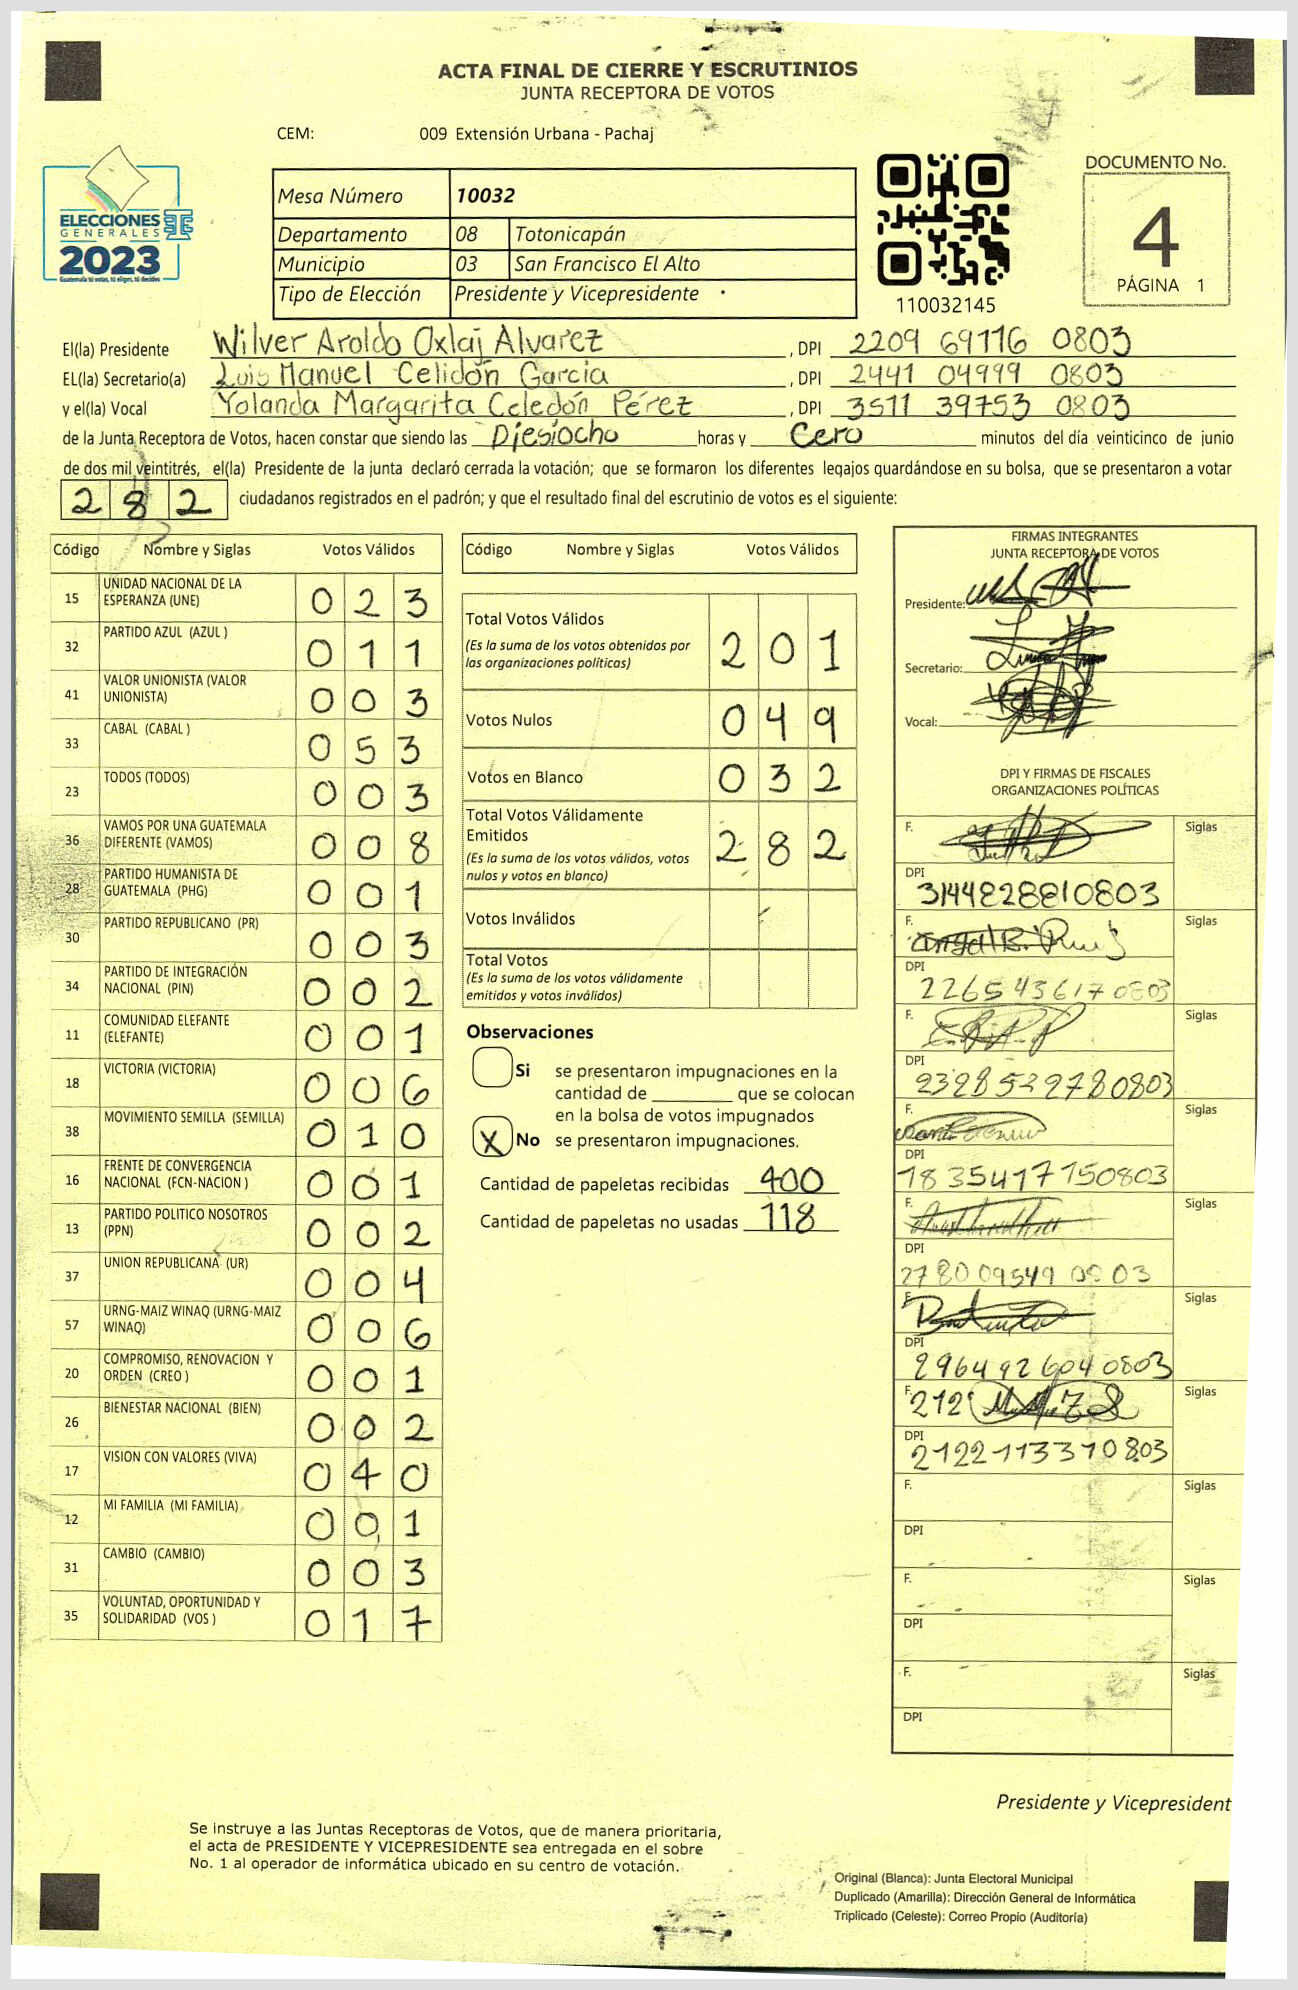 ACTA FINAL DE CIERRE Y ESCRUTINIOS
JUNTA RECEPTORA DE VOTOS
CEM: 009 Extensión Urbana - Pachaj
ELECCIONES
GENERALES
2023
Mesa Número 10032
Departamento 08 Totonicapán
Municipio 03 San Francisco El Alto
Tipo de Elección Presidente y Vicepresidente
110032145
DOCUMENTO No.
4
PÁGINA 1
El(la) Presidente Wilver Aroldo Oxlaj Alvarez , DPI 2209 69776 0803
EL(la) Secretario(a) Luis Manuel Celidón Garcia , DPI 2441 04999 0803
y el(la) Vocal Yolanda Margarita Celedón Pérez , DPI 3511 39753 0803
de la Junta Receptora de Votos, hacen constar que siendo las Diesiocho horas y Cero minutos del día veinticinco de junio
de dos mil veintitrés, el(la) Presidente de la junta declaró cerrada la votación; que se formaron los diferentes legajos guardándose en su bolsa, que se presentaron a votar
282 ciudadanos registrados en el padrón; y que el resultado final del escrutinio de votos es el siguiente:
Código Nombre y Siglas Votos Válidos
15 UNIDAD NACIONAL DE LA
ESPERANZA (UNE) 023
32 PARTIDO AZUL (AZUL ) 011
41 VALOR UNIONISTA (VALOR
UNIONISTA) 003
33 CABAL (CABAL ) 053
23 TODOS (TODOS) 003
36 VAMOS POR UNA GUATEMALA
DIFERENTE (VAMOS) 008
28 PARTIDO HUMANISTA DE
GUATEMALA (PHG) 001
30 PARTIDO REPUBLICANO (PR) 003
34 PARTIDO DE INTEGRACIÓN
NACIONAL (PIN) 002
11 COMUNIDAD ELEFANTE
(ELEFANTE) 001
18 VICTORIA (VICTORIA) 006
38 MOVIMIENTO SEMILLA (SEMILLA) 010
16 FRENTE DE CONVERGENCIA
NACIONAL (FCN-NACION ) 001
13 PARTIDO POLITICO NOSOTROS
(PPN) 002
37 UNION REPUBLICANA (UR) 004
57 URNG-MAIZ WINAQ (URNG-MAIZ
WINAQ) 006
20 COMPROMISO, RENOVACION Y
ORDEN (CREO ) 001
26 BIENESTAR NACIONAL (BIEN) 002
17 VISION CON VALORES (VIVA) 040
12 MI FAMILIA (MI FAMILIA) 001
31 CAMBIO (CAMBIO) 003
35 VOLUNTAD, OPORTUNIDAD Y
SOLIDARIDAD (VOS ) 017
Código Nombre y Siglas Votos Válidos
Total Votos Válidos
(Es la suma de los votos obtenidos por
las organizaciones políticas) 201
Votos Nulos 049
Votos en Blanco 032
Total Votos Válidamente
Emitidos
(Es la suma de los votos válidos, votos
nulos y votos en blanco) 282
Votos Inválidos
Total Votos
(Es la suma de los votos válidamente
emitidos y votos inválidos)
Observaciones
Si se presentaron impugnaciones en la
cantidad de ________ que se colocan
en la bolsa de votos impugnados
X No se presentaron impugnaciones.
Cantidad de papeletas recibidas 400
Cantidad de papeletas no usadas 118
FIRMAS INTEGRANTES
JUNTA RECEPTORA DE VOTOS
Presidente:
Secretario:
Vocal:
DPI Y FIRMAS DE FISCALES
ORGANIZACIONES POLÍTICAS
F. Siglas
DPI
3144828810803
F. Siglas
DPI
2265436170803
F. Siglas
DPI
2328532780803
F. Siglas
DPI
1835417150803
F. Siglas
DPI
2780095490803
F. Siglas
DPI
2964926040803
F. 212 Siglas
DPI
2122113370803
F. Siglas
DPI
F. Siglas
DPI
F. Siglas
DPI
Presidente y Vicepresident
Se instruye a las Juntas Receptoras de Votos, que de manera prioritaria,
el acta de PRESIDENTE Y VICEPRESIDENTE sea entregada en el sobre
No. 1 al operador de informática ubicado en su centro de votación.
Original (Blanca): Junta Electoral Municipal
Duplicado (Amarilla): Dirección General de Informática
Triplicado (Celeste): Correo Propio (Auditoría)